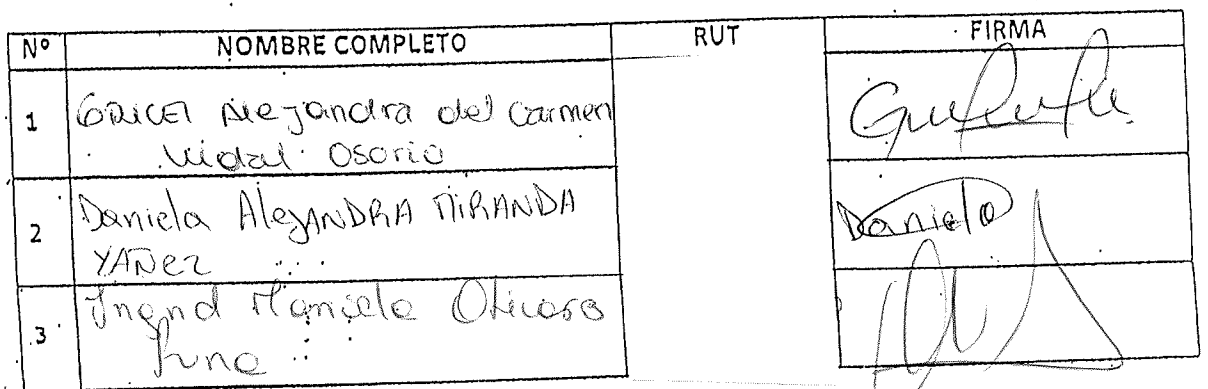 Nº NOMBRE COMPLETO RUT FIRMA
1 GRICEL Alejandra del Carmen
Vidal Osorio
2 Daniela AlejANDRA MIRANDA
YAÑez Daniela
3 Ingrid